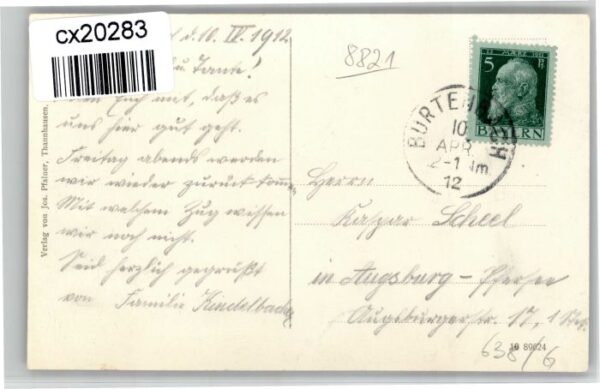 cx20283
d. 10. IV. 1912
u. Tante!
Euch mit, daß es
uns hier gut geht.
Freitag abends werden
wir wieder zurück komm.
Mit welchem Zug wissen
wir noch nicht.
Seid herzlich gegrüßt
von Familie Kindelbacher
Verlag von Jos. Pfalner, Thannhausen.
8821
5 Pf
BAYERN
BURTENBACH
10
APR.
2-1 Nm
12
Herrn
Kaspar Scheel
in Augsburg - Pfersee
Augsburgerstr. 17, 1 Stck.
10 89024
638/6